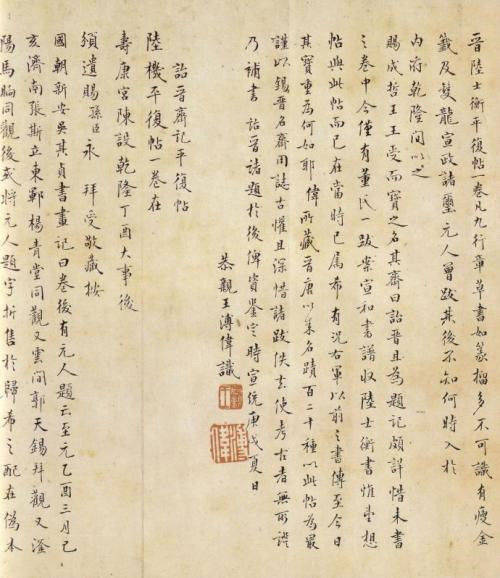 晉陸士衡平復帖一卷凡九行章草書如篆籀多不可識有瘦金
籤及雙龍宣政諸璽元人曾跋其後不知何時入於
內府乾隆間以之
賜成哲王王受而寶之名其齋曰詒晉且為題記頗詳惜未書
之卷中今僅有董氏一跋案宣和書譜收陸士衡書惟望想
帖與此帖而已在當時已属希有況右軍以前之書傳至今日
其寶重為何如耶偉所藏晉唐以来名蹟百二十種以此帖為最
謹以錫晉名齋用誌古懽且深惜諸跋佚去使考古者無所證
乃補書詒晉諸題於後俾資鑒定時宣統庚戌夏日
恭親王溥偉識
詒晉齋記平復帖
陸機平復帖一卷在
壽康宮陳設乾隆丁酉大事後
頒遺賜孫臣永拜受敬藏按
國朝新安吳其貞書畫記曰卷後有元人題云至元乙酉三月己
亥濟南張斯立東鄆楊青堂同觀又雲間郭天錫拜觀又滏
陽馬昫同觀後或將元人題字折售於歸希之配在偽本